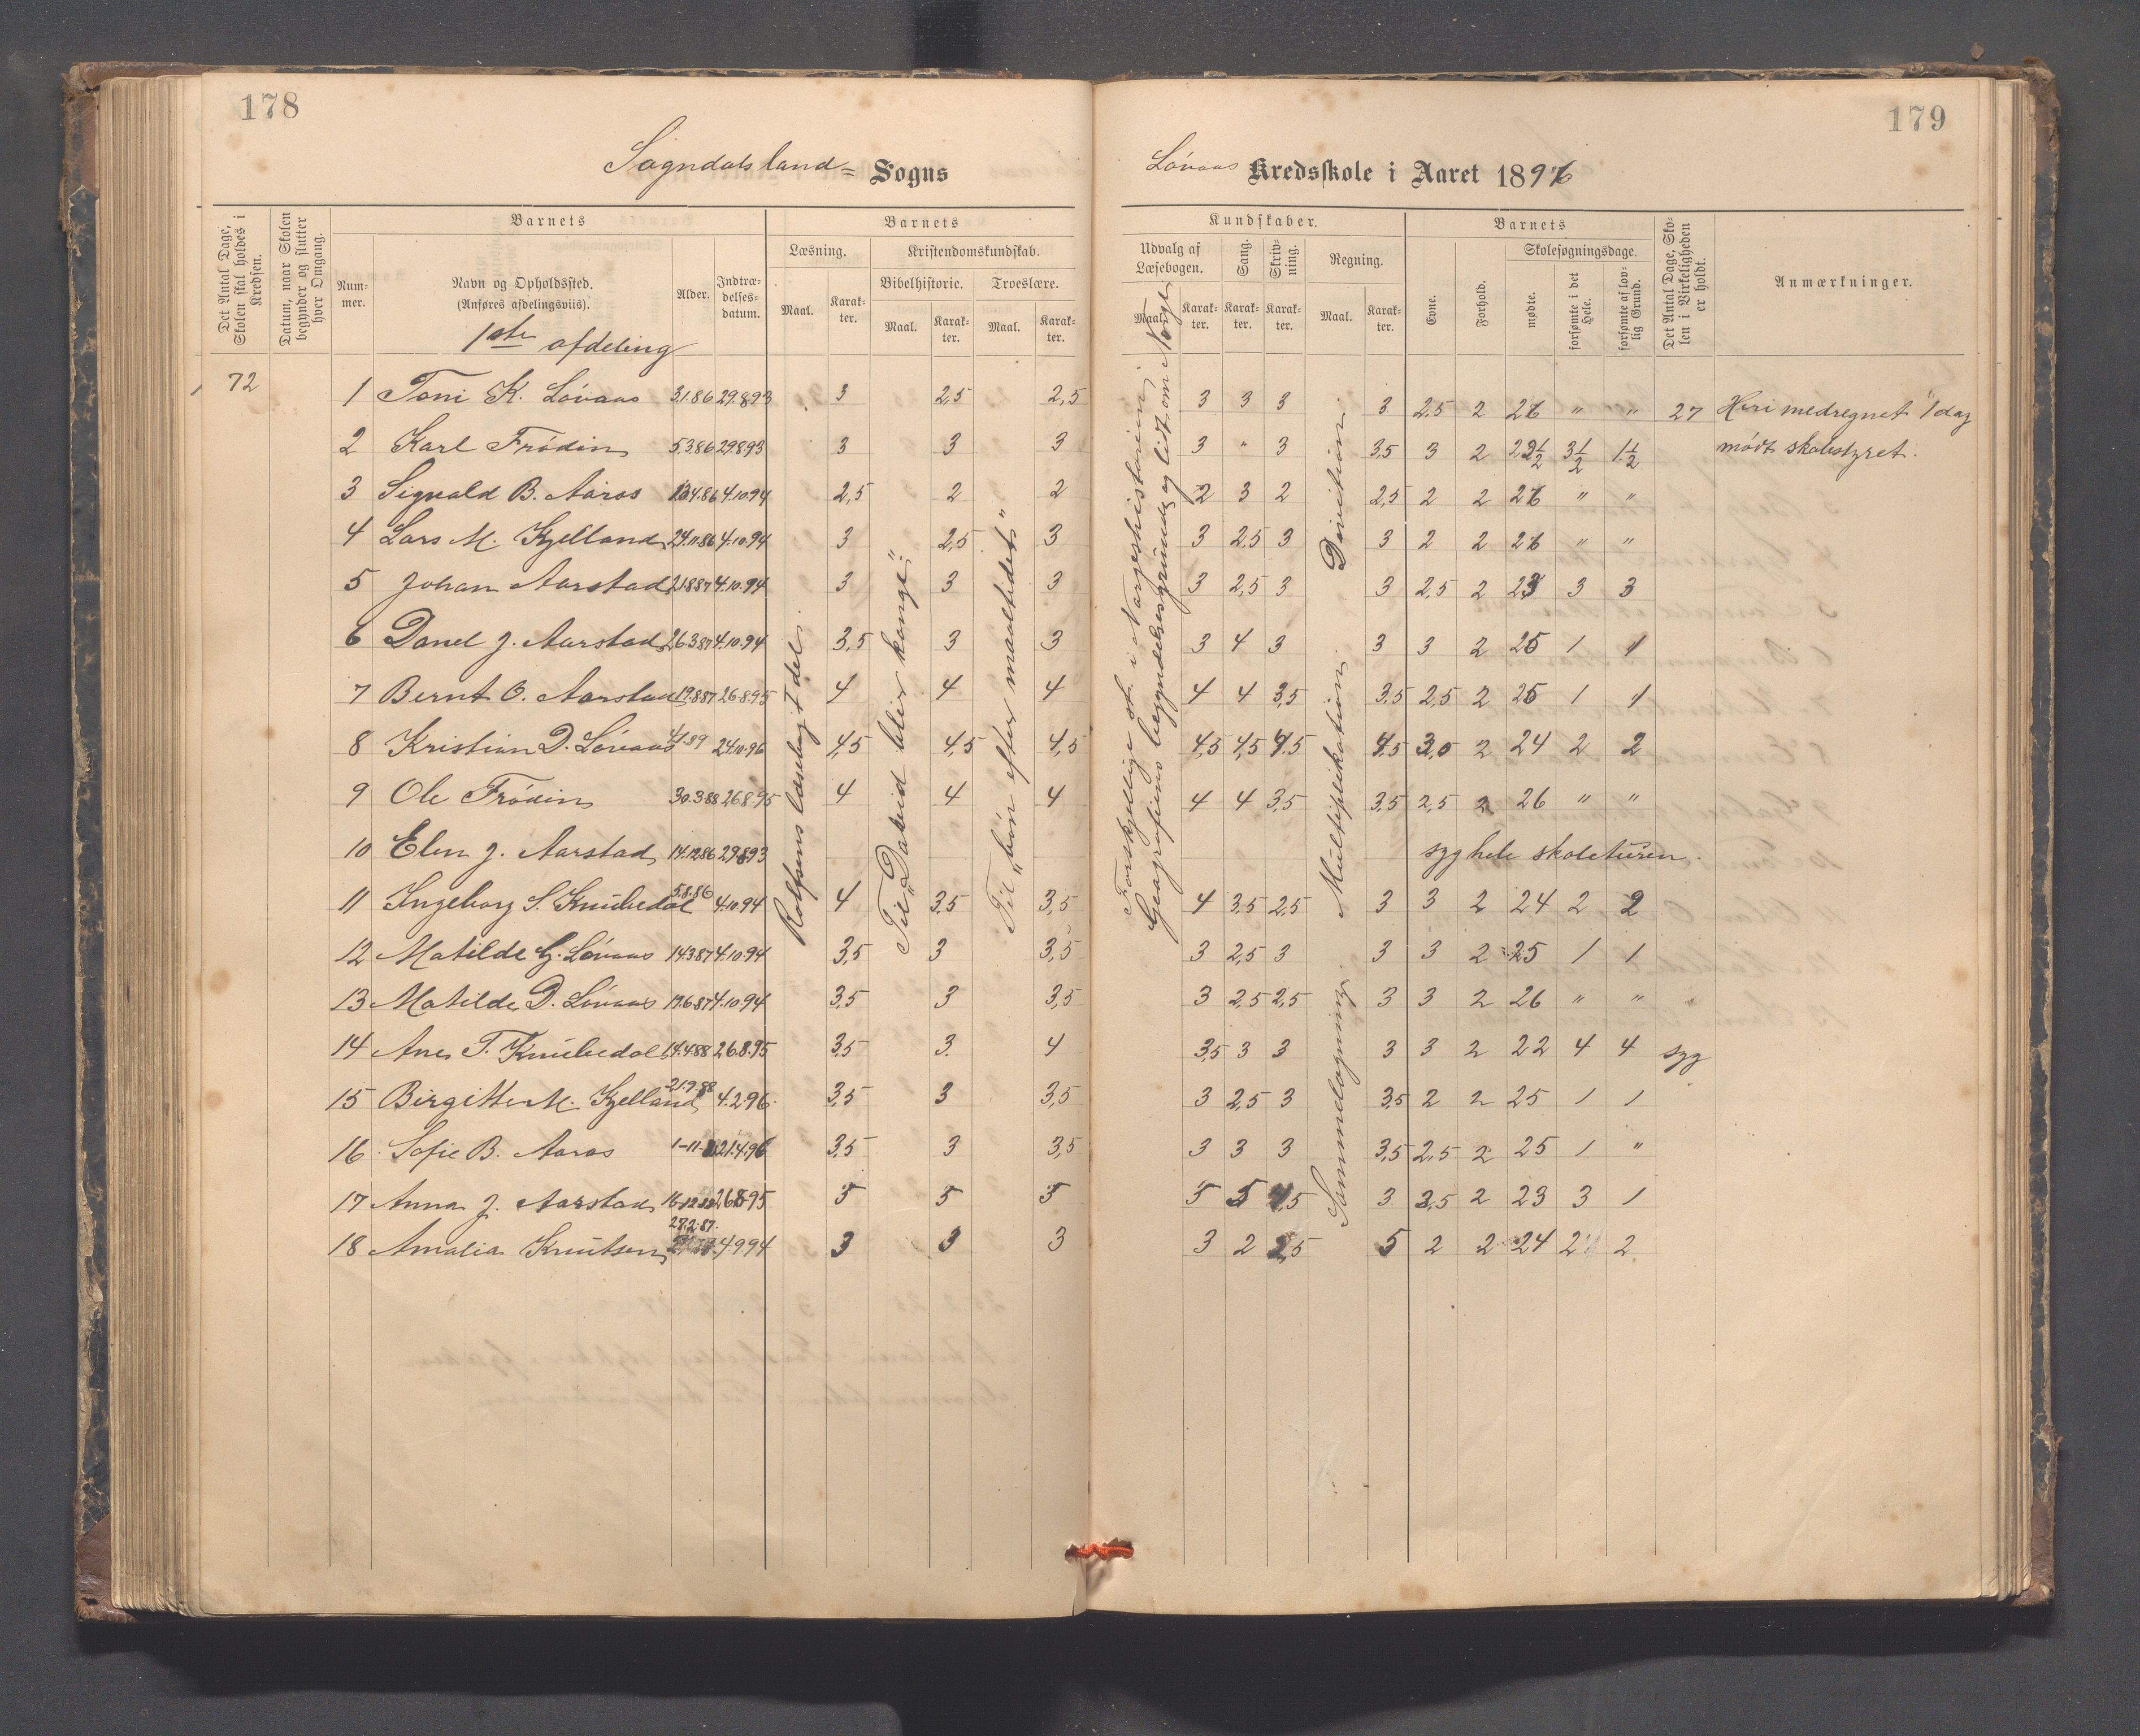 178
Sogndalsland= Sogns
Det Antal Dage, Skolen skal holdes i Kredsen.
Datum, naar Skolen begynder og slutter hver Omgang.
Barnets
Nummer.
Navn og Opholdssted.
(Anføres afdelingsviis).
Alder.
Indtrædelsesdatum.
Barnets
Læsning.
Kristendomskundskab.
Bibelhistorie.
Troeslære.
Maal. Karakter. Maal. Karakter. Maal. Karakter.
1ste afdeling
72
1 Toni K. Lóvaas 3.1.86 29.8.93 3 2,5 2,5
2 Karl Fródin 5.3.86 29.8.93 3 3 3
3 Sigvald B. Aaros 10.4.86 4.10.94 2,5 2 2
4 Lars M. Kjelland 29.11.86 4.10.94 3 2,5 3
5 Johan Aarstad 21.8.87 4.10.94 3 3 3
6 Danel J. Aarstad 26.3.87 4.10.94 3,5 3 3
7 Bernt O. Aarstad 19.8.87 26.8.95 4 4 4
8 Kristian D. Lóvaas 4.1.89 24.10.96 4,5 4,5 4,5
9 Ole Fródin 30.3.88 26.8.95 4 4 4
10 Elen J. Aarstad 14.12.86 29.8.93
11 Ingeborg S. Knubedal 5.8.86 4.10.94 4 3,5 3,5
12 Matilde G. Lóvaas 14.3.87 4.10.94 3,5 3 3,5
13 Matilde D. Lóvaas 19.6.87 4.10.94 3,5 3 3,5
14 Ane T. Knubedal 14.4.88 26.8.95 3,5 3 4
15 Birgitte M. Kjelland 21.9.88 4.2.96 3,5 3 3,5
16 Sofie B. Aaros 1-11- 21.4.96 3,5 3 3,5
17 Anna J. Aarstad 16-12 26.8.95 5 5 5
18 Amalia Knutsen 27.2.87. 4.9.94 3 3 3
Rolfsens læsebog 1 del.
Til „David blir konge".
Til „bón efter maaltidet"
179
Lóvaas Kredsskole i Aaret 1896
Kundskaber.
Udvalg af Læsebogen.
Sang.
Skrivning.
Regning.
Maal. Karakter. Karakter. Karakter. Maal. Karakter.
Barnets
Evne.
Forhold.
Skolesøgningsdage.
mødte.
forsømte i det Hele.
forsømte af lovlig Grund.
Det Antal Dage, Skolen i Virkeligheden er holdt.
Anmærkninger.
3 3 3 3 2.5 2 26 " " 27 Heri medregnet 1 dag
3 " 3 3,5 3 2 22½ 3½ 1½ módt skolestyret.
2 3 2 2,5 2 2 26 " "
3 2,5 3 3 2 2 26 " "
3 2,5 3 3 2,5 2 23 3 3
3 4 3 3 3 2 25 1 1
4 4 3,5 3,5 2,5 2 25 1 1
4,5 4,5 4.5 4,5 3,0 2 24 2 2
4 4 3,5 3,5 2,5 2 26 " "
syg hele skoleturen.
4 3,5 2,5 3 3 2 24 2 2
3 2,5 3 3 3 2 25 1 1
3 2,5 2,5 3 3 2 26 " "
3,5 3 3 3 3 2 22 4 4 syg
3 2,5 3 3,5 2 2 25 1 1
3 3 3 3,5 2,5 2 25 1 "
5 5 4,5 3 2,5 2 23 3 1
3 2 2,5 5 2 2 24 2 2
Forskjellige st. i Norgeshistorien
Geografiens begyndelsesgrunde og lidt om Norge
Sammenlægning. Multiplikation. Division.